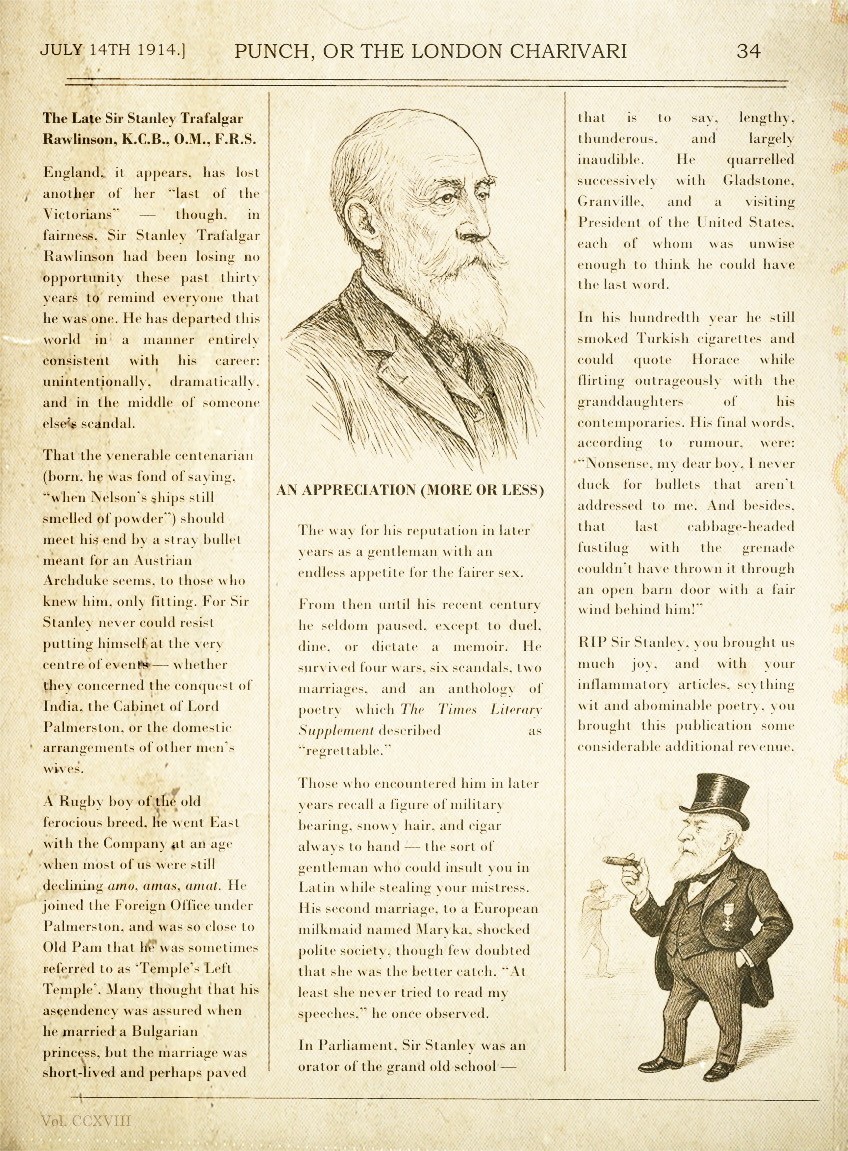 JULY 14TH 1914.]
PUNCH, OR THE LONDON CHARIVARI
34
The Late Sir Stanley Trafalgar
Rawlinson, K.C.B., O.M., F.R.S.
England, it appears, has lost
another of her “last of the
Victorians” — though, in
fairness, Sir Stanley Trafalgar
Rawlinson had been losing no
opportunity these past thirty
years to remind everyone that
he was one. He has departed this
world in a manner entirely
consistent with his career:
unintentionally, dramatically,
and in the middle of someone
else's scandal.
That the venerable centenarian
(born, he was fond of saying,
“when Nelson's ships still
smelled of powder”) should
meet his end by a stray bullet
meant for an Austrian
Archduke seems, to those who
knew him, only fitting. For Sir
Stanley never could resist
putting himself at the very
centre of events — whether
they concerned the conquest of
India, the Cabinet of Lord
Palmerston, or the domestic
arrangements of other men's
wives.
A Rugby boy of the old
ferocious breed, he went East
with the Company at an age
when most of us were still
declining amo, amas, amat. He
joined the Foreign Office under
Palmerston, and was so close to
Old Pam that he was sometimes
referred to as ‘Temple's Left
Temple’. Many thought that his
ascendency was assured when
he married a Bulgarian
princess, but the marriage was
short-lived and perhaps paved
AN APPRECIATION (MORE OR LESS)
The way for his reputation in later
years as a gentleman with an
endless appetite for the fairer sex.
From then until his recent century
he seldom paused, except to duel,
dine, or dictate a memoir. He
survived four wars, six scandals, two
marriages, and an anthology of
poetry which The Times Literary
Supplement described as
“regrettable.”
Those who encountered him in later
years recall a figure of military
bearing, snowy hair, and cigar
always to hand — the sort of
gentleman who could insult you in
Latin while stealing your mistress.
His second marriage, to a European
milkmaid named Maryka, shocked
polite society, though few doubted
that she was the better catch. “At
least she never tried to read my
speeches,” he once observed.
In Parliament, Sir Stanley was an
orator of the grand old school —
that is to say, lengthy,
thunderous, and largely
inaudible. He quarrelled
successively with Gladstone,
Granville, and a visiting
President of the United States,
each of whom was unwise
enough to think he could have
the last word.
In his hundredth year he still
smoked Turkish cigarettes and
could quote Horace while
flirting outrageously with the
granddaughters of his
contemporaries. His final words,
according to rumour, were:
“Nonsense, my dear boy, I never
duck for bullets that aren't
addressed to me. And besides,
that last cabbage-headed
fustilug with the grenade
couldn't have thrown it through
an open barn door with a fair
wind behind him!”
RIP Sir Stanley, you brought us
much joy, and with your
inflammatory articles, scything
wit and abominable poetry, you
brought this publication some
considerable additional revenue.
Vol. CCXVIII